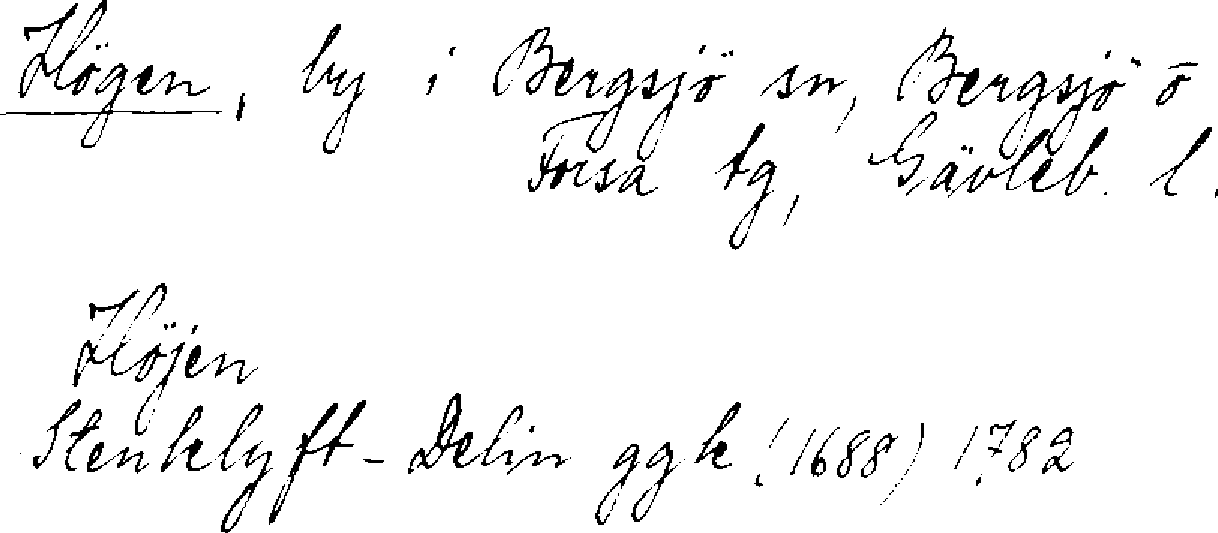 Högen, by i Bergsjö sn, Bergsjö o
Forsa tg, Gävleb. l.
Höjen
Stenklyft-Delin ggk (1688) 1782